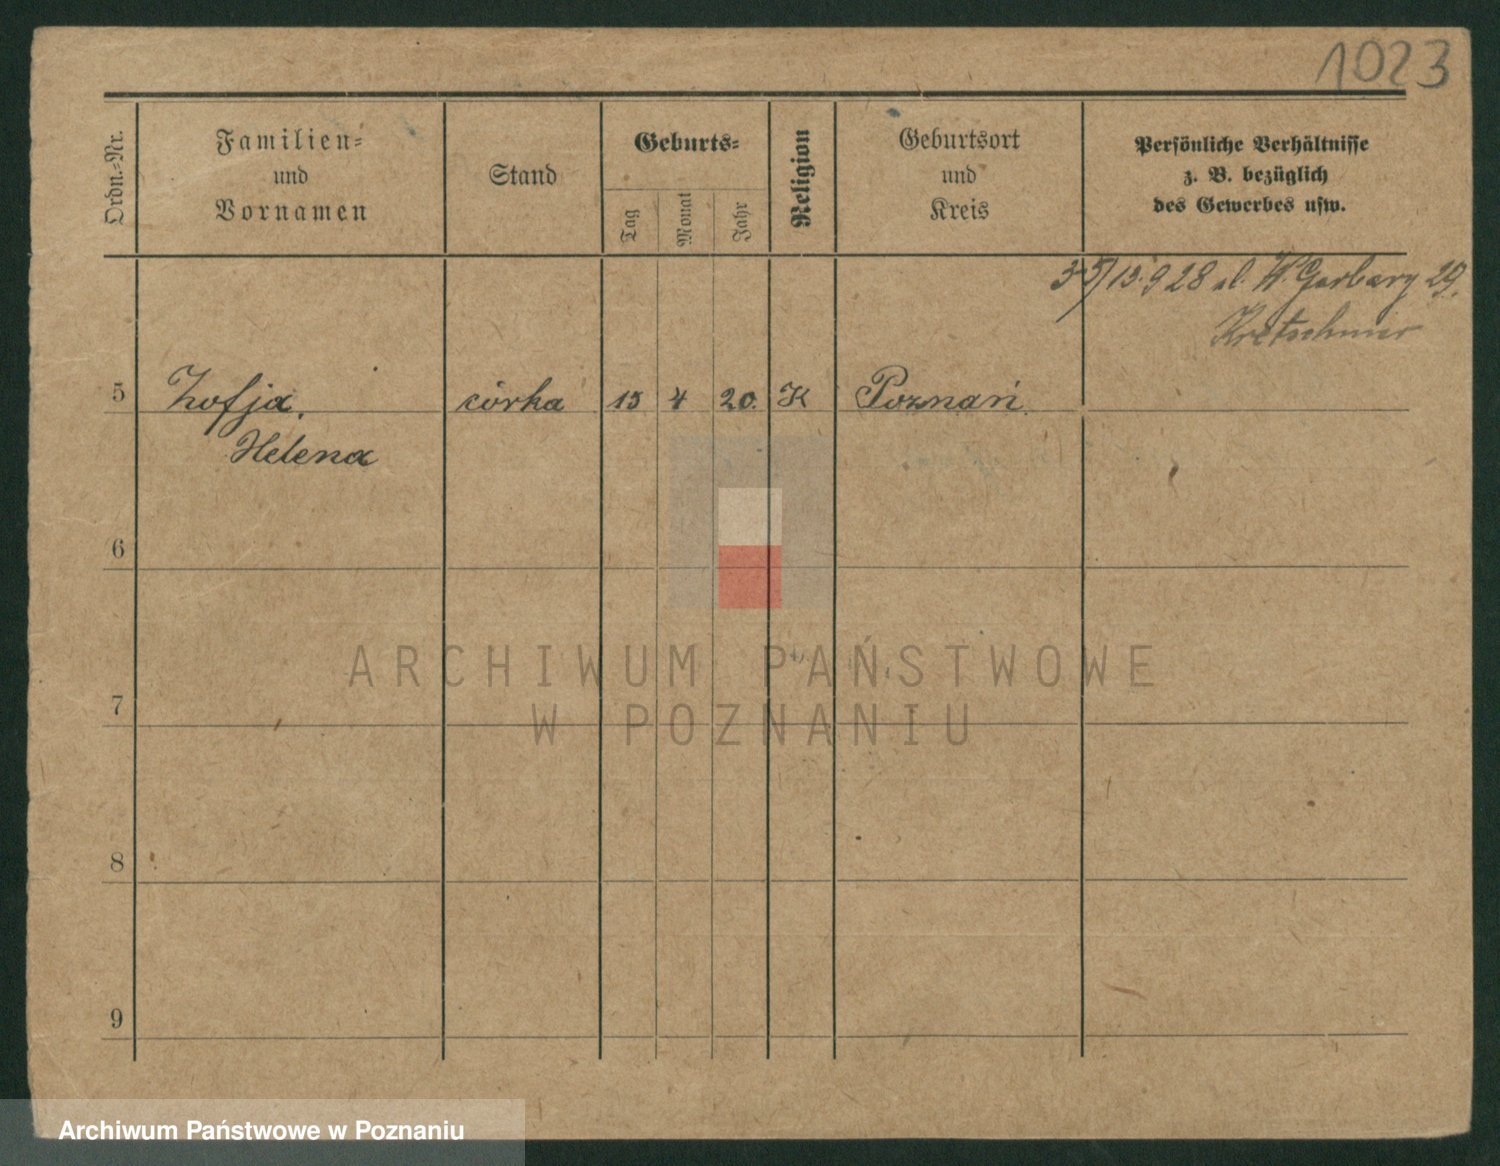 1023
Ordn.-Nr.
Familien-
und
Vornamen
Stand
Geburts-
Tag
Monat
Jahr
Religion
Geburtsort
und
Kreis
Persönliche Verhältnisse
z. B. bezüglich
des Gewerbes usw.
3-5/13.9 28 ul. W. Garbary 29.
Kretschmer
5 Zofja. córka 15 4 20. K Poznań
Helena
6
7
8
9
ARCHIWUM PAŃSTWOWE
W POZNANIU
Archiwum Państwowe w Poznaniu